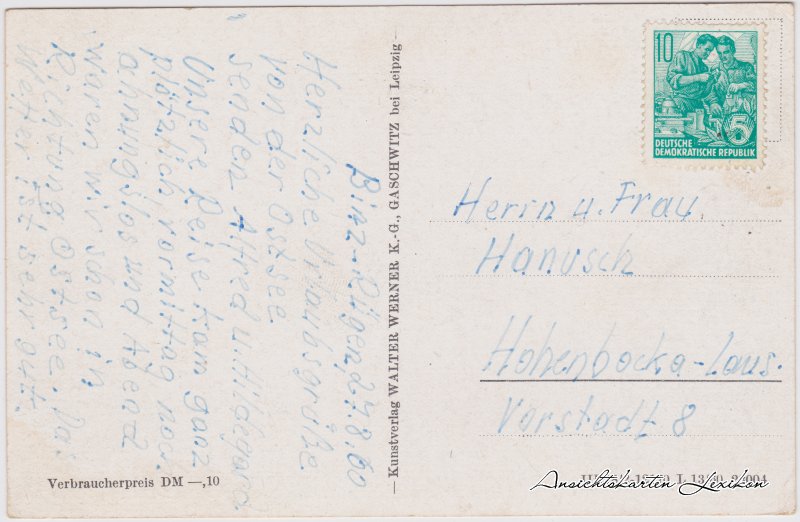 Binz-Rügen, 27.8.60
Herzliche Urlaubsgrüße
von der Ostsee
senden Alfred u. Hildegard
"
Unsere Reise kam ganz
plötzlich, vormittag noch
ahnungslos und Abend
waren wir schon in
Richtung Ostsee. Das
Wetter ist sehr gut.
Verbraucherpreis DM —,10
— Kunstverlag WALTER WERNER K.-G., GASCHWITZ bei Leipzig —
10
5
DEUTSCHE
DEMOKRATISCHE REPUBLIK
Herrn u. Frau
Hanusch
Hohenbocka-Laus.
Vorstadt 8
Ansichtskarten Lexikon